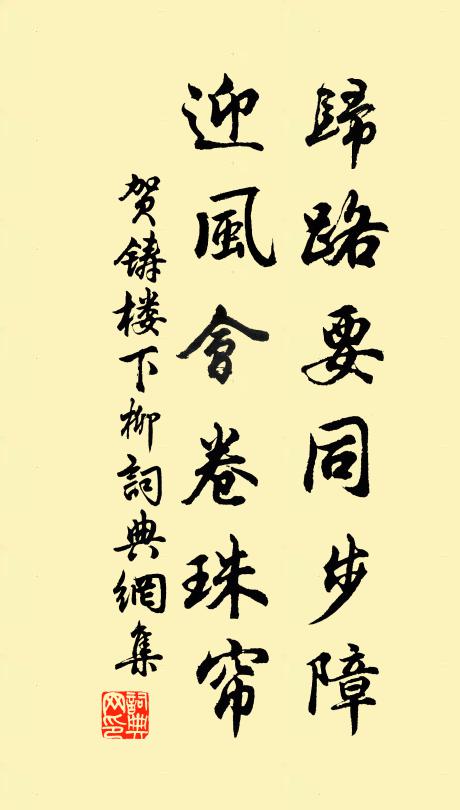 歸路要同步障
迎風會卷珠帘
贺鑄楼下柳詞典網集
詞典网印